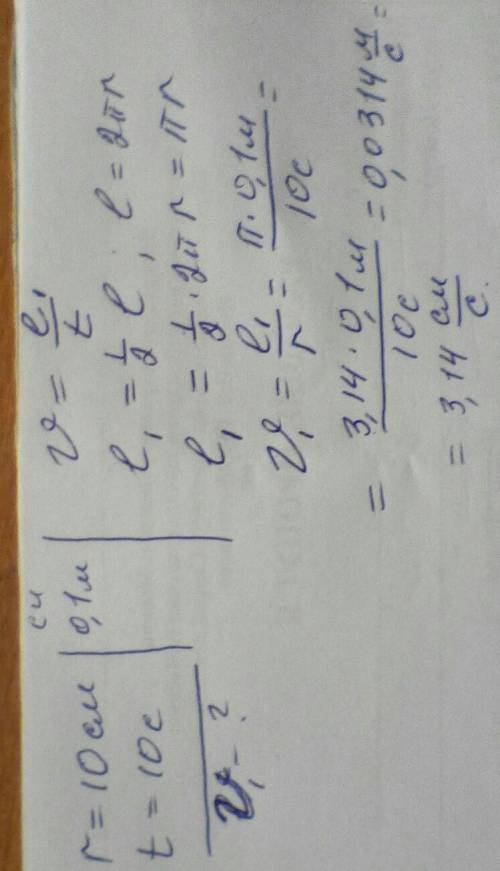 r = 10см | 0,1м
t = 10с
V₁ - ?
си
v = l₁/t
l₁ = 1/2 l ; l = 2πr
l₁ = 1/2 · 2πr = πr
v₁ = l₁/r = π · 0,1м/10с =
= 3,14 · 0,1м/10с = 0,0314 м/с =
= 3,14 см/с.